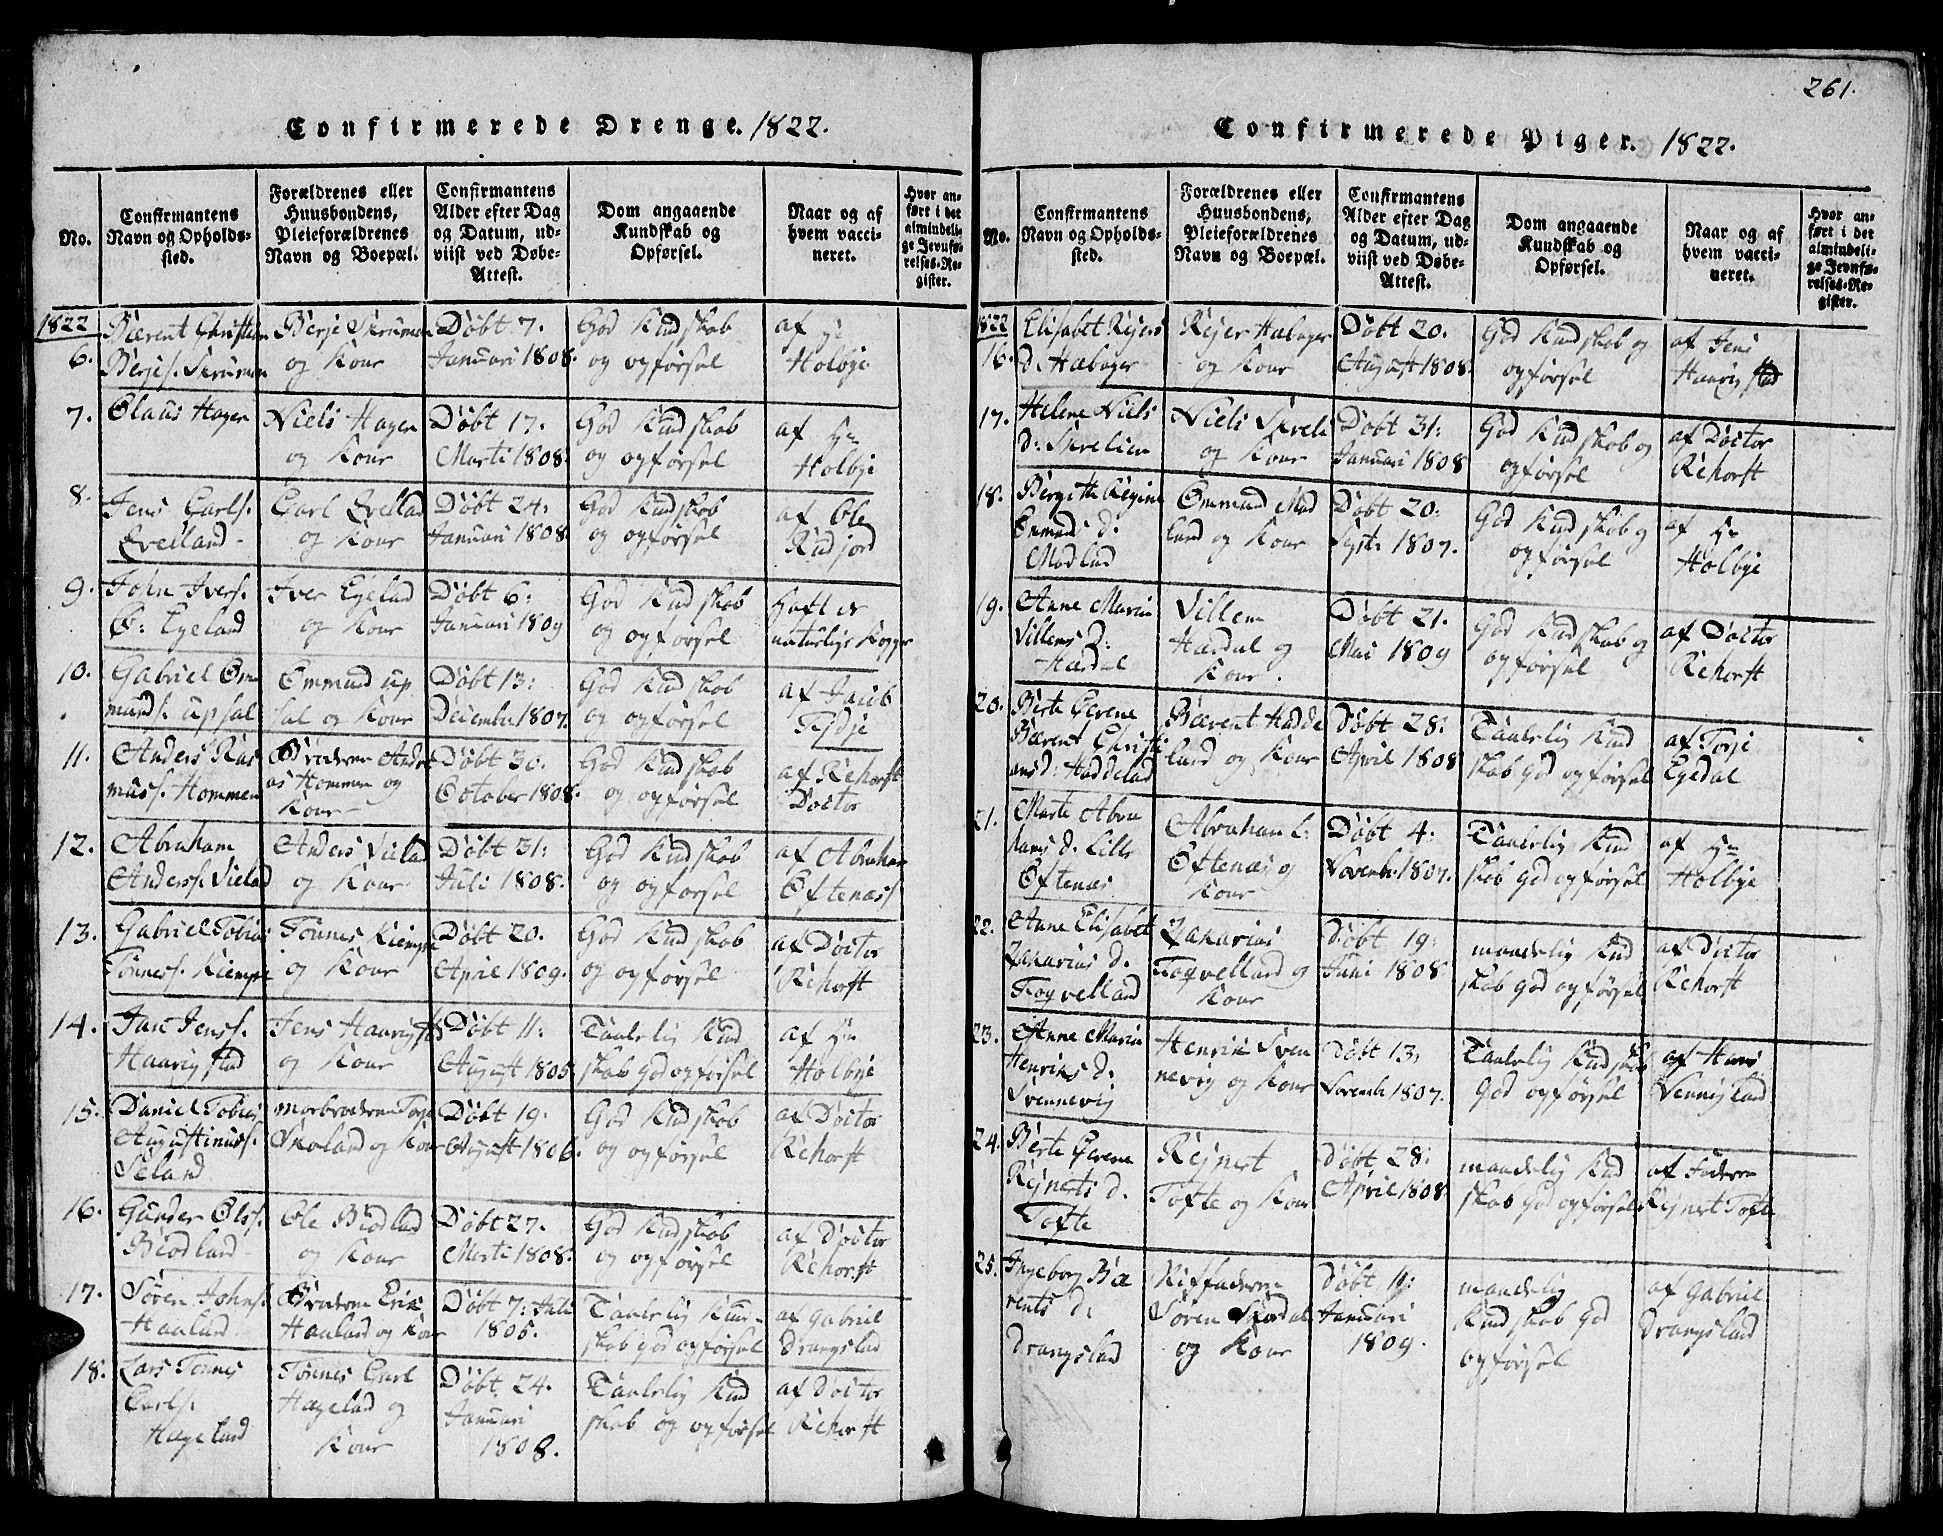 Confirmerede Drenge. 1822.
No.
Confirmantens
Navn og Opholds-
sted.
Forældrenes eller
Huusbondens,
Pleieforældrenes
Navn og Boepæl.
Confirmantens
Alder efter Dag
og Datum, ud-
viist ved Døbe-
Attest.
Dom angaaende
Kundskab og
Opførsel.
Naar og af
hvem vacci-
neret.
Hvor an-
ført i det
almindeli-
ge Jevnfø-
relses-Re-
gister.
1822
6.
Bærent Christian
Berjes. Skrumen
Berje Skrumen
og Kone
Døbt 7.
Januari 1808.
God Kundskab
og opførsel
af Hr
Holbye
7.
Olaus Hager
Niels Hager
og Kone
Døbt 17.
Marti 1808.
God Kundskab
og opførsel
af Hr
Holbye
8.
Jens Carls.
Qveiland
Carl Qveilad
og Kone
Døbt 24:
Januari 1808.
God Kundskab
og opførsel
af Ole
Rudjord
9.
John Ivers.
Ø: Egeland
Iver Egelad
og Kone
Døbt 6:
Januari 1809
God Kundskab
og opførsel
Haft de
naturlige Kopper
10.
Gabriel Om
munds. Upsal
Ommund Up
sal og Kone
Døbt 13:
December 1807.
God Kundskab
og opførsel
af Jacob
11.
Anders Ras
muss. Hommen
Broderen Andre
as Hommen og
Kone
Døbt 30.
October 1808.
God Kundskab
og opførsel
af Rehorst
Doctor
12.
Abraham
Anderss. Vielad
Anders Vielad
og Kone
Døbt 31:
Juli 1808.
God Kundskab
og opførsel
af Abraham
Øftenæss
13.
Gabriel Tobias
Tønness. Kiempe
Tønnes Kiempe
og Kone
Døbt 20.
April 1809.
God Kundskab
og opførsel
af Doctor
Rehorst
14.
Jens Jenss.
Haarigstad
Jens Haarigst:
og Kone
Døbt 11:
August 1805
Taalelig Kund
skab God opførsel
af Hr
Holbye
15.
Daniel Tobias
Augustinuss.
Seland
Morbroderen Torje
Skoland og Kone
Døbt 19.
August 1806.
God Kundskab
og opførsel
af Doctor
Rehorst
16.
Gunder Olss.
Biodland
Ole Biodlad
og Kone
Døbt 27.
Marti 1808.
God Kundskab
og opførsel
af Doctor
Rehorst
17.
Søren Johns.
Haaland
Broderen Erik
Haaland og Kone
Døbt 7: Juli
1805.
Taalelig Kund-
skab god opførsel
af Gabriel
Drangslad
18.
Lars Tønnes
Carls.
Hægeland
Tønnes Carl
Hægelad og
Kone
Døbt 24.
Januari
1808.
Taalelig Kund
skab og opførsel
af Doctor
Rehorst
261.
Confirmerede Piger. 1822.
No.
Confirmantens
Navn og Opholds-
sted.
Forældrenes eller
Huusbondens,
Pleieforældrenes
Navn og Boepæl.
Confirmantens
Alder efter Dag
og Datum, ud-
viist ved Døbe-
Attest.
Dom angaaende
Kundskab og
Opførsel.
Naar og af
hvem vacci-
neret.
Hvor an-
ført i det
almindeli-
ge Jevnfø-
relses-Re-
gister.
1822
16.
Elisabet Rejers
d. Habager
Rejer Habager
og Kone
Døbt 20.
August 1808
God Kundskab og
opførsel
af Jens
Haarigstad
17.
Helene Niels
d: Skrelien
Niels Skreli
og Kone
Døbt 31:
Januari 1808
God Kundskab og
opførsel
af Doctor
Rehorst
18.
Bergitte Regine
Ommunds d:
Modlad
Ommund Mod
land og Kone
Døbt 20:
1807.
God Kundskab og
opførsel
af Hr
Holbye
19.
Anne Maria
Villems d:
Hardal
Villem
Hardal og
Kone.
Døbt 21.
Mai 1809
God Kundskab og
opførsel
af Doctor
Rehorst
20.
Berte Serene
Bærent Christi
ans d: Haddelad
Bærent Hadde
land og Kone
Døbt 28:
April 1808
Taalelig Kund
skab God opførsel
af Torje
Egedal
21.
Marte Abra
hams d. Lille
Øftenæs
Abraham L:
Øftenæs og
Kone
Døbt 4:
Novemb: 1807.
Taalelig Kund
skab God opførsel
af Hr
Holbye
22.
Anne Elisabet
Zakarias d.
Foqvelland
Zakarias
Foqvelland og
Kone
Døbt 19:
Juni 1808
maadelig Kund
skab God opførsel
af Doctor
Rehorst
23.
Anne Maria
Henriks d.
Svennevig
Henrik Sven
nevig og Kone
Døbt 13:
Novemb: 1807.
Taalelig Kundskab
God opførsel
af Hans
Vennisland
24.
Berte Serene
Rejnerts d.
Tofte
Rejnert
Tofte og Kone
Døbt 28:
April 1808
maadelig Kund
skab God opførsel
af Faderen
Rejnert Tofte
25.
Ingeborg Bæ
rents d:
Drangslad
Stiffaderen
Søren
og Kone
Døbt 11:
Januari
1809.
maadelig
Kundskab God
opførsel
af Gabriel
Drangslad